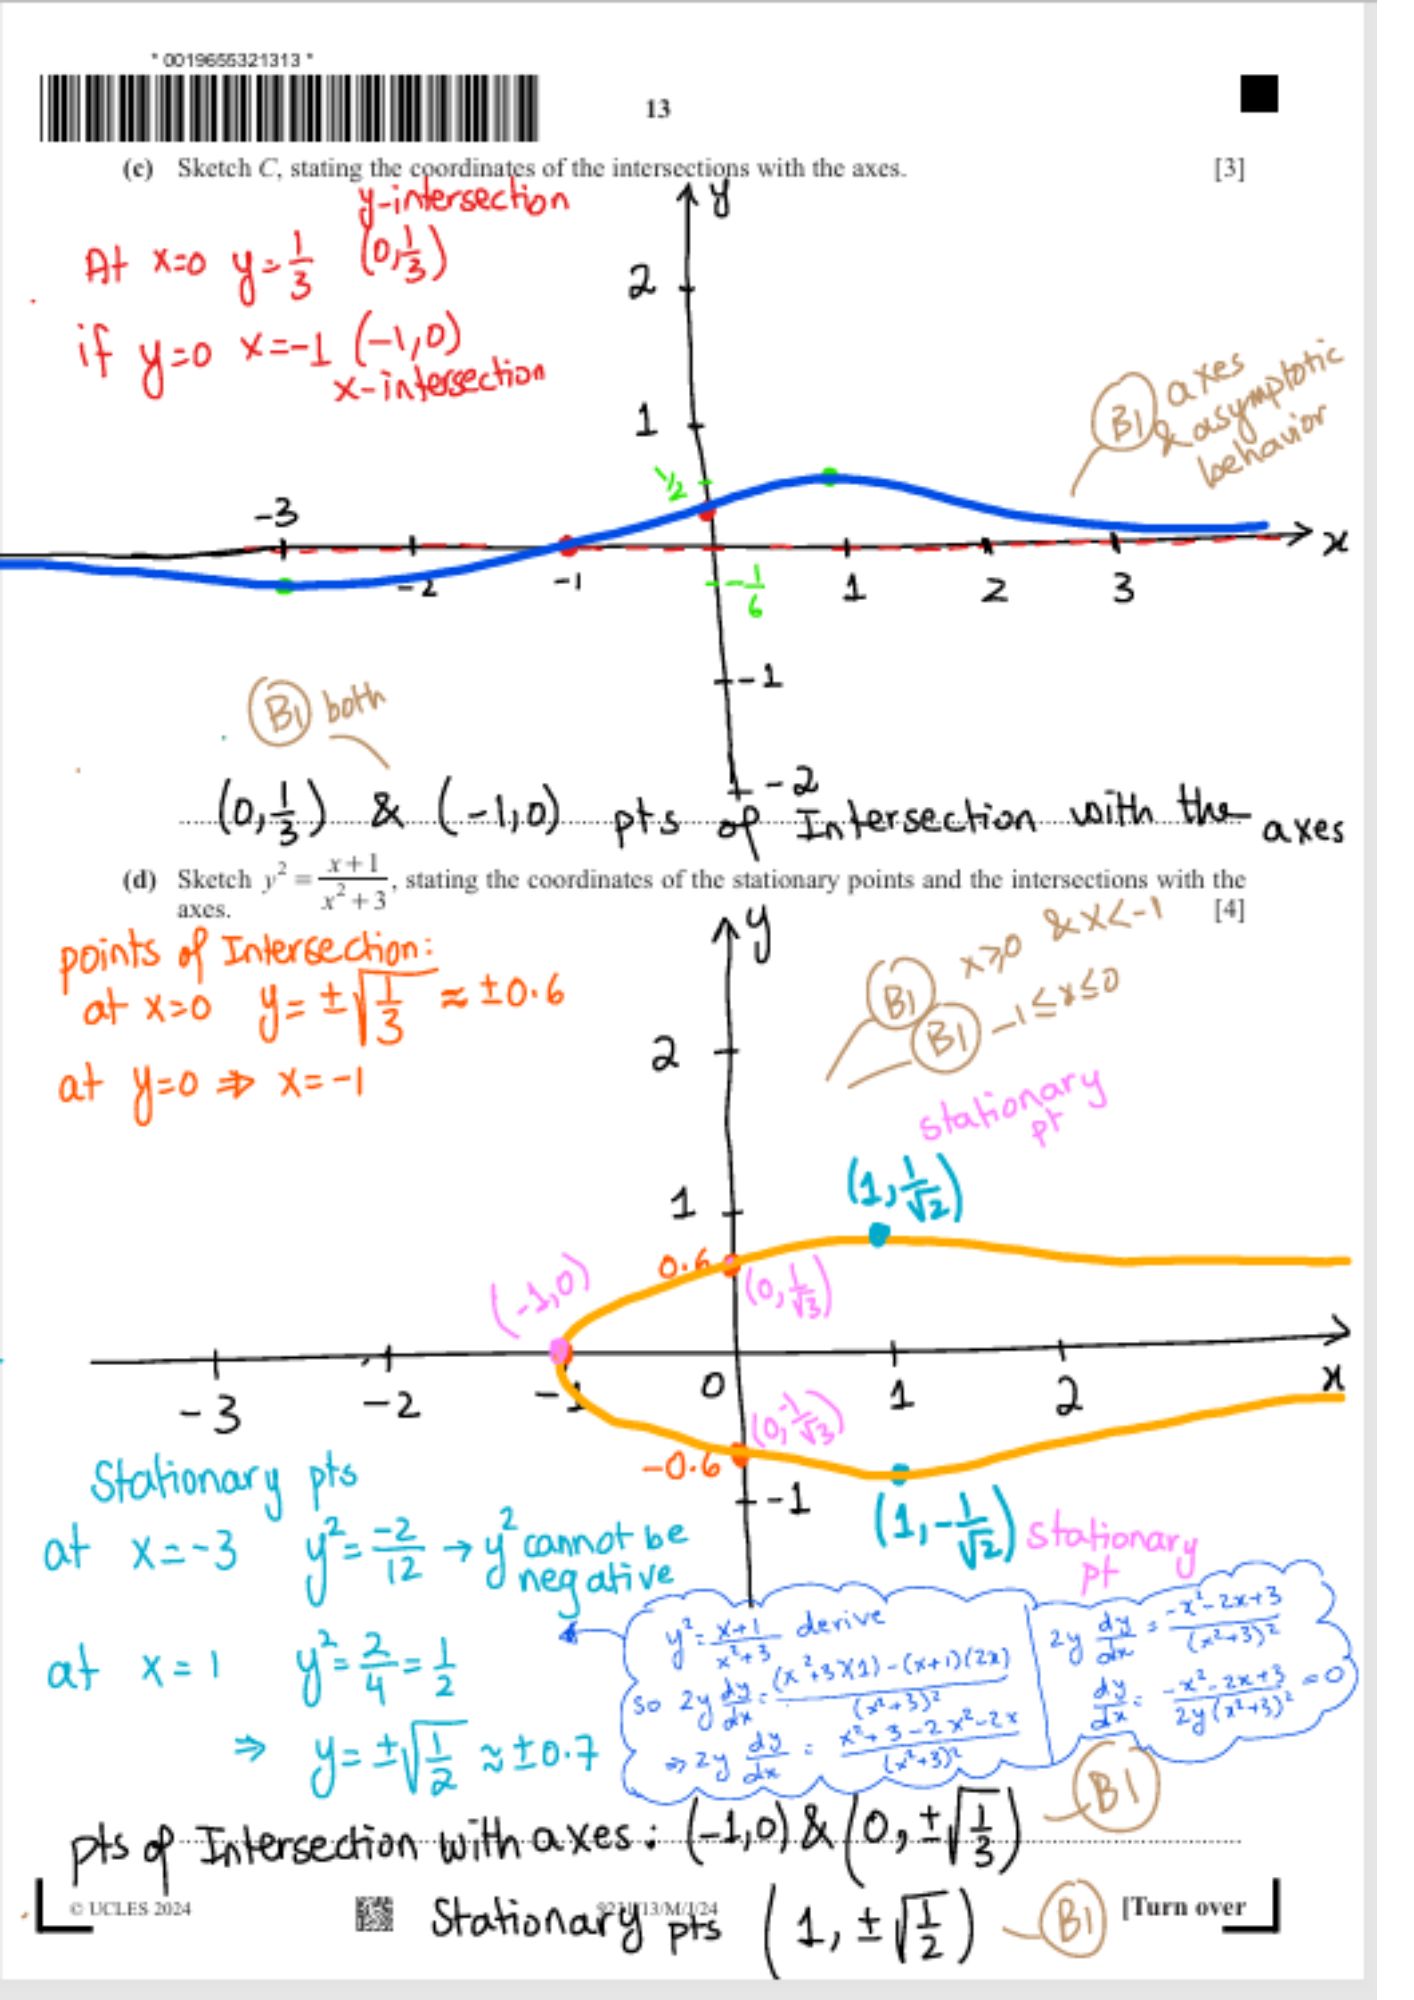 * 0019655321313 *
13
(c) Sketch C, stating the coordinates of the intersections with the axes. [3]
y-intersection
At x=0 y=1/3 (0,1/3)
if y=0 x=-1 (-1,0)
x-intersection
y
2
1
1/2
-3
-2
-1
-1/6
1
2
3
x
-1
-2
B1 axes
& asymptotic
behavior
B1 both
(0,1/3) & (-1,0) pts of Intersection with the axes
(d) Sketch y² = (x+1)/(x²+3), stating the coordinates of the stationary points and the intersections with the
axes. [4]
points of Intersection:
at x=0 y=±√(1/3) ≈ ±0.6
at y=0 ⇒ x=-1
y
2
1
0.6
B1 x≥0 & x<-1
B1 -1≤x≤0
stationary
pt
(1,1/√2)
(-1,0)
(0,1/√3)
-3
-2
-1
0
1
2
x
(0,-1/√3)
-0.6
-1
(1,-1/√2) stationary
pt
Stationary pts
at x=-3 y²=-2/12 → y² cannot be
negative
at x=1 y²=2/4=1/2
⇒ y=±√(1/2) ≈ ±0.7
y²=(x+1)/(x²+3) derive
so 2y dy/dx = ((x²+3)(1)-(x+1)(2x))/(x²+3)²
⇒ 2y dy/dx = (x²+3-2x²-2x)/(x²+3)²
2y dy/dx = (-x²-2x+3)/(x²+3)²
dy/dx = (-x²-2x+3)/(2y(x²+3)²) = 0
pts of Intersection with axes: (-1,0) & (0,±√(1/3)) B1
Stationary pts (1,±√(1/2)) B1
© UCLES 2024
13/M/J/24
[Turn over